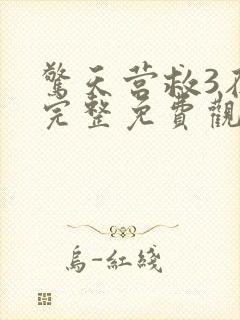 驚天营救3在
完整免費觀
烏-紅綫